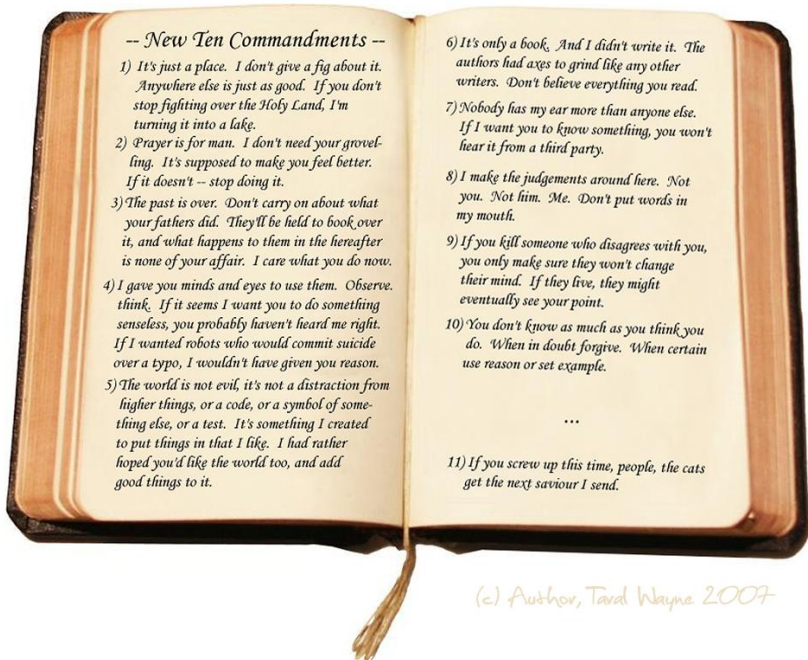 -- New Ten Commandments --
1) It's just a place. I don't give a fig about it.
Anywhere else is just as good. If you don't
stop fighting over the Holy Land, I'm
turning it into a lake.
2) Prayer is for man. I don't need your grovel-
ling. It's supposed to make you feel better.
If it doesn't -- stop doing it.
3) The past is over. Don't carry on about what
your fathers did. They'll be held to book over
it, and what happens to them in the hereafter
is none of your affair. I care what you do now.
4) I gave you minds and eyes to use them. Observe.
think. If it seems I want you to do something
senseless, you probably haven't heard me right.
If I wanted robots who would commit suicide
over a typo, I wouldn't have given you reason.
5) The world is not evil, it's not a distraction from
higher things, or a code, or a symbol of some-
thing else, or a test. It's something I created
to put things in that I like. I had rather
hoped you'd like the world too, and add
good things to it.
6) It's only a book. And I didn't write it. The
authors had axes to grind like any other
writers. Don't believe everything you read.
7) Nobody has my ear more than anyone else.
If I want you to know something, you won't
hear it from a third party.
8) I make the judgements around here. Not
you. Not him. Me. Don't put words in
my mouth.
9) If you kill someone who disagrees with you,
you only make sure they won't change
their mind. If they live, they might
eventually see your point.
10) You don't know as much as you think you
do. When in doubt forgive. When certain
use reason or set example.
...
11) If you screw up this time, people, the cats
get the next saviour I send.
(c) Author, Taral Wayne 2007